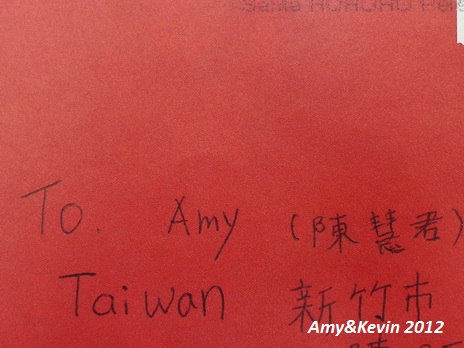 To. Amy (陳慧君)
Taiwan 新竹市
Amy&Kevin 2012